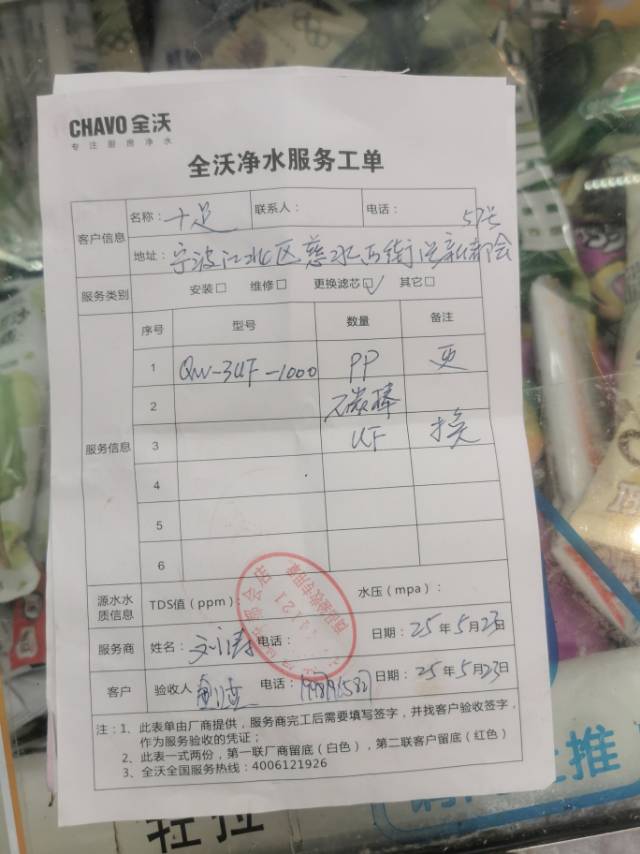 CHAVO 全沃
专注厨房净水
全沃净水服务工单
客户信息 名称：十足 联系人： 电话：
57号
地址：宁波江北区慈水西街 新都会
服务类别 安装□ 维修□ 更换滤芯☑ 其它□
服务信息 序号 型号 数量 备注
1 QW-3UF-1000 PP 更
2 碳棒
3 UF 换
4
5
6
源水水质信息 TDS值（ppm）： 水压（mpa）：
服务商 姓名：刘涛 电话： 日期：25年5月23日
客户 验收人 电话： 日期：25年5月23日
注：1、此表单由厂商提供，服务商完工后需要填写签字，并找客户验收签字，
作为服务验收的凭证；
2、此表一式两份，第一联厂商留底（白色），第二联客户留底（红色）
3、全沃全国服务热线：4006121926
轻拉
推